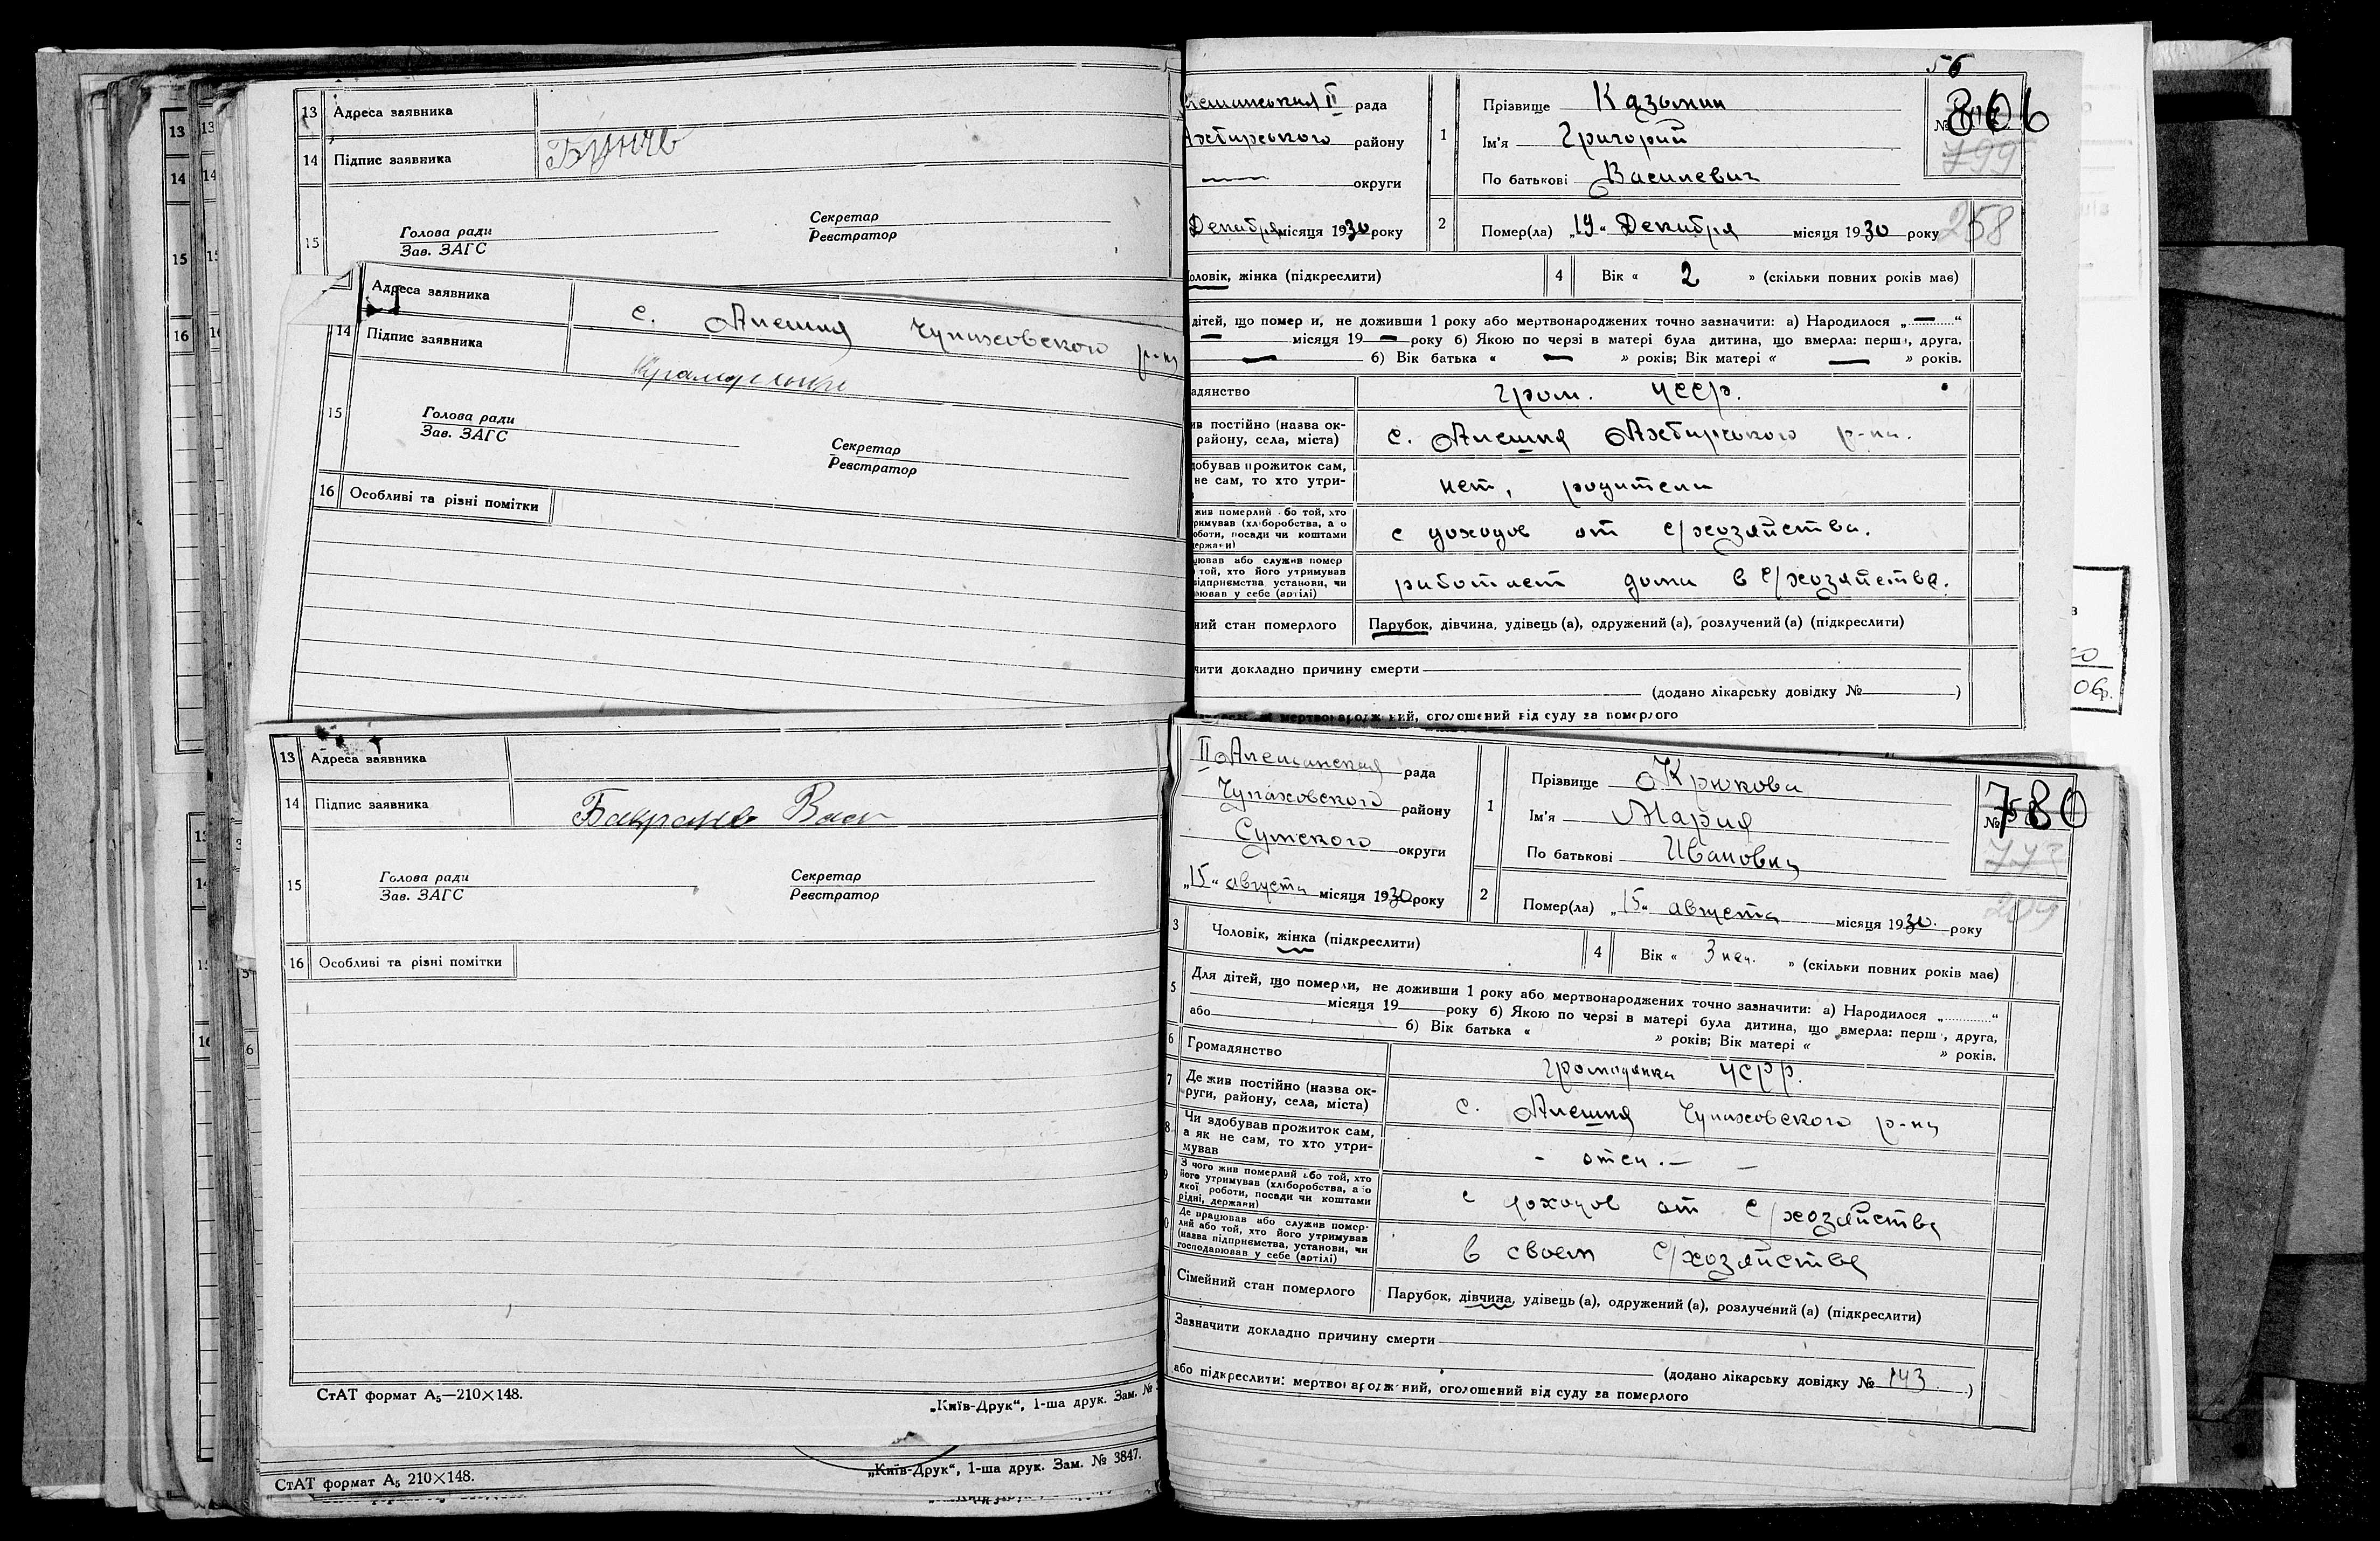 13 Адреса заявника
14 Підпис заявника
15 Голова ради Секретар
Зав. ЗАГС Реєстратор
Адреса заявника с. Алешня Чупаховского р-на
14 Підпис заявника
15 Голова ради Секретар
Зав. ЗАГС Реєстратор
16 Особливі та різні помітки
13 Адреса заявника
14 Підпис заявника
15 Голова ради Секретар
Зав. ЗАГС Реєстратор
16 Особливі та різні помітки
СтАТ формат А5—210×148.
„Київ-Друк“, 1-ша друк. Зам. №
СтАТ формат А5 210×148.
„Київ-Друк“, 1-ша друк. Зам. № 3847.
56
II рада
Ахтирського району
округи
Декабря місяця 1930 року
1 Прізвище Казьмин
Ім'я Григорий
По батькові Василевич
№ 806
799
2 Помер(ла) „19“ Декабря місяця 1930 року
258
оловік, жінка (підкреслити) 4 Вік « 2 » (скільки повних років має)
дітей, що помер и, не доживши 1 року або мертвонароджених точно зазначити: а) Народилося „ — “
— місяця 19 — року б) Якою по черзі в матері була дитина, що вмерла: перш, друга,
— б) Вік батька « — » років; Вік матері « — » років.
адянство гром. УССР.
ив постійно (назва ок-
району, села, міста) с. Алешня Ахтирського р-на.
добував прожиток сам,
не сам, то хто утри- нет, родители
жив померлий бо той, хто
римував (хліборобства, а о
оботи, посади чи коштами
держави) с доходов от с/хозяйства.
цював або служив помер
той, хто його утримував
підприємства установи, чи
рював у себе (артілі) работает дома в с/хозяйстве.
ний стан померлого Парубок, дівчина, удівець (а), одружений (а), розлучений (а) (підкреслити)
чити докладно причину смерти
(додано лікарську довідку № )
ний, оголошений від суду за померлого
II Алешанская рада
Чупаховского району
Сумского округи
„15“ августа місяця 1930 року
1 Прізвище Крюкова
Ім'я Мария
По батькові Ивановна
№ 780
773
2 Помер(ла) „15“ августа місяця 1930. року
209
3 Чоловік, жінка (підкреслити) 4 Вік « 3 нед. » (скільки повних років має)
5 Для дітей, що померли, не доживши 1 року або мертвонароджених точно зазначити: а) Народилося „ “
місяця 19 року б) Якою по черзі в матері була дитина, що вмерла: перш, друга,
або б) Вік батька « » років; Вік матері « » років.
6 Громадянство громадянка УСРР.
7 Де жив постійно (назва ок-
руги, району, села, міста) с. Алешня Чупаховского р-на
8 Чи здобував прожиток сам,
а як не сам, то хто утри-
мував - отец. — —
9 З чого жив померлий або той, хто
його утримував (хліборобства, а о
якої роботи, посади чи коштами
рідні, держави) с доходов от с/хозяйства
0 Де працював або служив помер-
лий або той, хто його утримував
(назва підприємства, установи, чи
господарював у себе (артілі) в своем с/хозяйстве
Сімейний стан померлого Парубок, дівчина, удівець (а), одружений (а), розлучений (а) (підкреслити)
Зазначити докладно причину смерти
(додано лікарську довідку № 143. )
або підкреслити: мертвонароджений, оголошений від суду за померлого